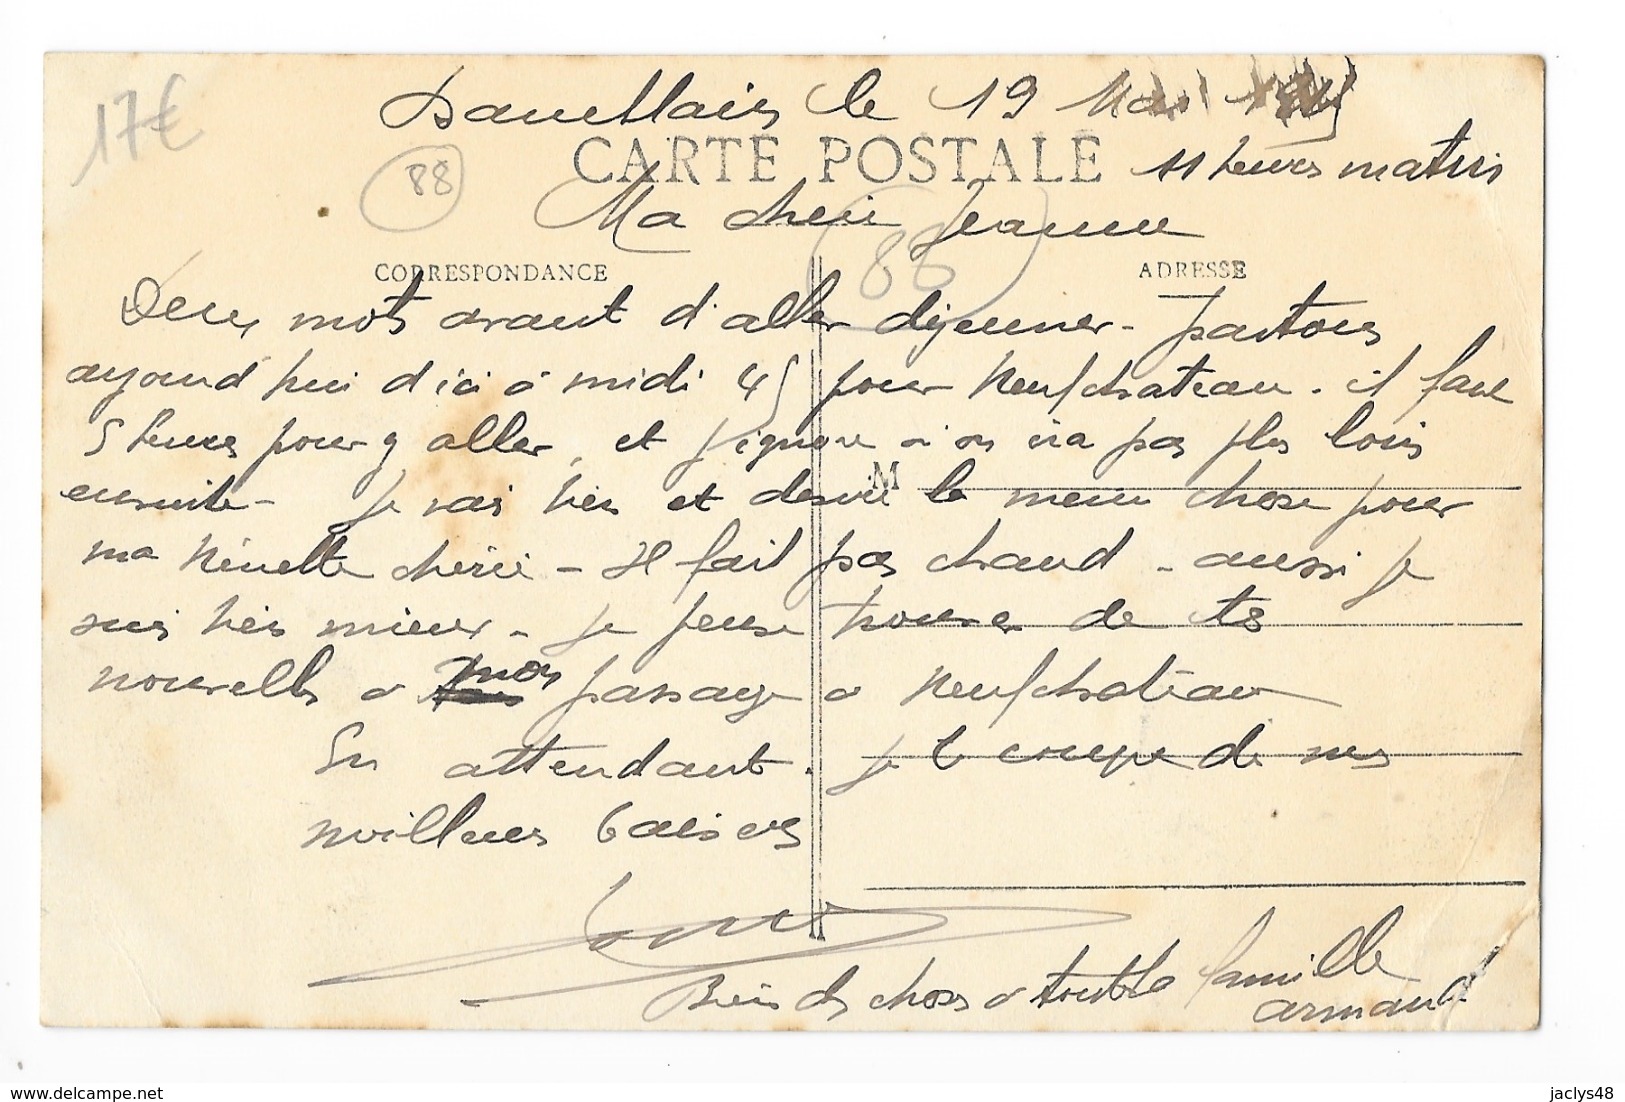 17€
le 19 Mai
CARTE POSTALE
11 heures matin
88
Ma cherie Jeanne
88
CORRESPONDANCE
ADRESSE
Deux mots avant d'aller dejeuner - partons
aujourd'hui d'ici à midi 45 pour Neufchateau. il faut
5 heures pour y aller, et j'ignore si on ira pas plus loin
ensuite - Je vais bien et desire la meme chose pour
M
ma Nénette chérie - Il fait pas chaud - aussi je
suis très mieux - je pense trouver de tes
nouvelles a mon passage a Neufchateau
En attendant. je t coupe de mes
meilleures baisers
Bien des choses a toute la famille
armand
www.delcampe.net
jaclys48